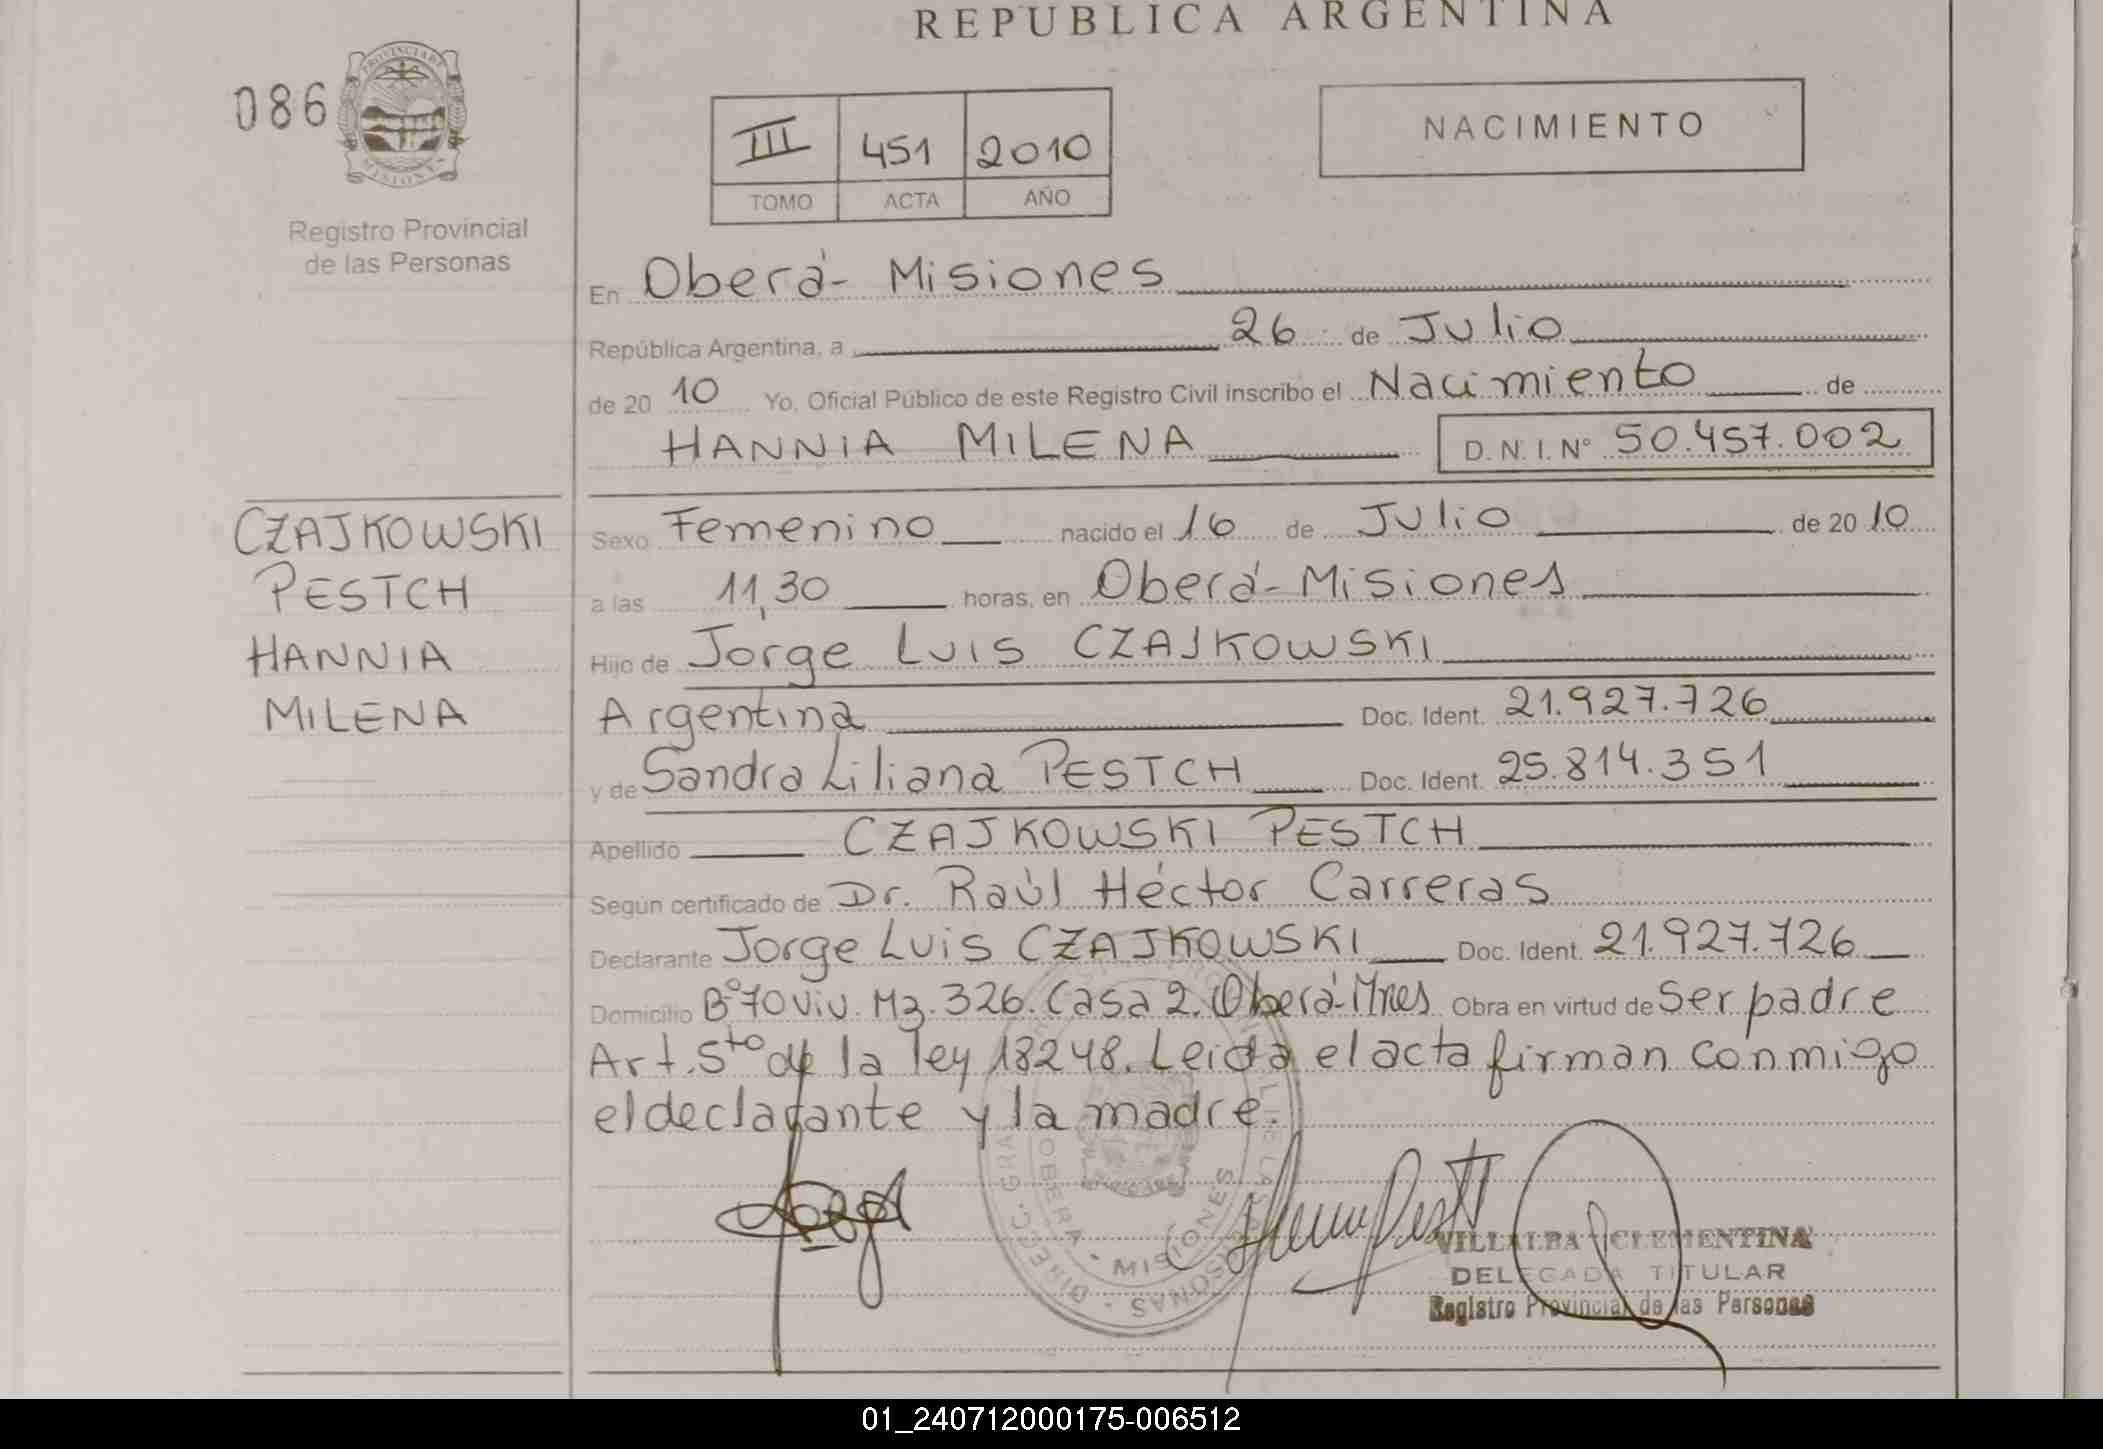 REPUBLICA ARGENTINA
086
PROVINCIA DE MISIONES
Registro Provincial
de las Personas
III 451 2010
TOMO ACTA AÑO
NACIMIENTO
En Oberá - Misiones
República Argentina, a 26 de Julio
de 20 10 Yo, Oficial Público de este Registro Civil inscribo el Nacimiento de
HANNIA MILENA D.N.I. Nº 50.457.002
CZAJKOWSKI
PESTCH
HANNIA
MILENA
Sexo Femenino nacido el 16 de Julio de 20 10
a las 11,30 horas, en Oberá - Misiones
Hijo de Jorge Luis CZAJKOWSKI
Argentina Doc. Ident. 21.927.726
y de Sandra Liliana PESTCH Doc. Ident. 25.814.351
Apellido CZAJKOWSKI PESTCH
Según certificado de Dr. Raúl Héctor Carreras
Declarante Jorge Luis CZAJKOWSKI Doc. Ident. 21.927.726
Domicilio Bº 70 Viv. Mz. 326. Casa 2. Oberá - Mnes Obra en virtud de Ser padre
Art. 5to de la ley 18248. Leida el acta firman conmigo
el declarante y la madre.
OBERA - MISIONES
VILLALBA CLEMENTINA
DELEGADA TITULAR
Registro Provincial de las Personas
01_240712000175-006512